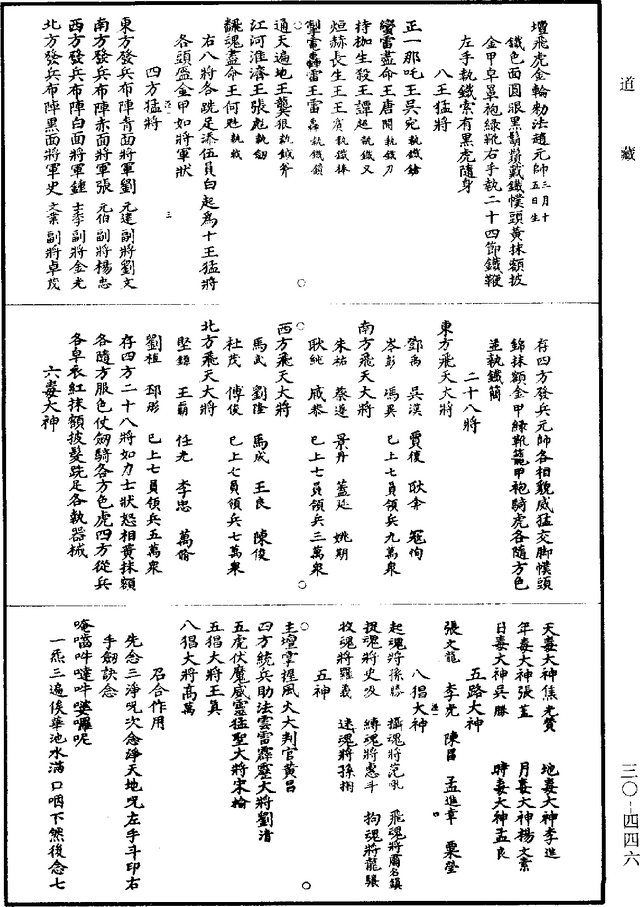 道藏
壇飛虎金輪勑法趙元帥三月十五日生
鐵色面圓眼黑鬍鬚戴鐵幞頭黃抹額披
金甲皁羅袍綠靴右手執二十四節鐵鞭
左手執鐵索有黑虎隨身
八王猛將
正一那吒王吳
蠻雷盡命王唐 執鐵刀
持枷生殺王譚 執鐵叉
烜赫長生王王 執鐵棒
掣電轟雷王雷 執鐵鎖
通天遍地王龔 執鉞斧
江河淮濟王張彪執劔
飜魂盡命王何 執戟
右八將各跣足添伍員白起為十王猛將
各頭盔金甲如將軍狀
四方猛將
東方發兵布陣青面將軍劉元達副將劉文
南方發兵布陣赤面將軍張元伯副將楊忠
西方發兵布陣白面將軍鍾士季副將金光
北方發兵布陣黑面將軍史文業副將卓茂
存四方發兵元帥各相貌威猛交脚幞頭
錦抹額金甲綠靴籠甲袍騎虎各隨方色
並執鐵簡
二十八將
東方飛天大將
鄧禹 吳漢 賈復 耿弇 寇恂
岑彭 馮異 已上七員領兵九萬衆
南方飛天大將
朱祐 蔡遵 景丹 蓋延 姚期
耿純 臧恭 已上七員領兵三萬衆
西方飛天大將
馬武 劉隆 馬成 王良 陳俊
杜茂 傅俊 已上七員領兵七萬衆
北方飛天大將
堅鐔 王霸 任光 李忠 萬脩
劉植 邳彤 已上七員領兵五萬衆
存四方二十八將如力士狀怒相黃抹額
各隨方服色仗劔騎各方色虎四方從兵
各皁衣紅抹額披髮跣足各執器械
六毒大神
天毒大神焦光贊 地毒大神李進
年毒大神張蓋 月毒大神楊文素
日毒大神吳勝 時毒大神孟良
五路大神
張文龍 李光 陳昌 孟進章 栗瑩
八猖大神
起魂將孫勝 攝魂將范 飛魂將爾名鎮
捉魂將史 縛魂將惠斗 拘魂將龍驤
收魂將羅義 迷魂將孫栩
五神
主壇掌握風火大判官黃昌
四方統兵助法雲雷霹靂大將劉清
五虎伏魔威靈猛聖大將宋榆
五猖大將王真
八猖大將高萬
召合作用
先念三淨呪次念淨天地呪左手斗印右
手劔訣念
唵 吽 吽 呢
一炁三遍俟華池水滿口咽下然後念七
三〇-四四六